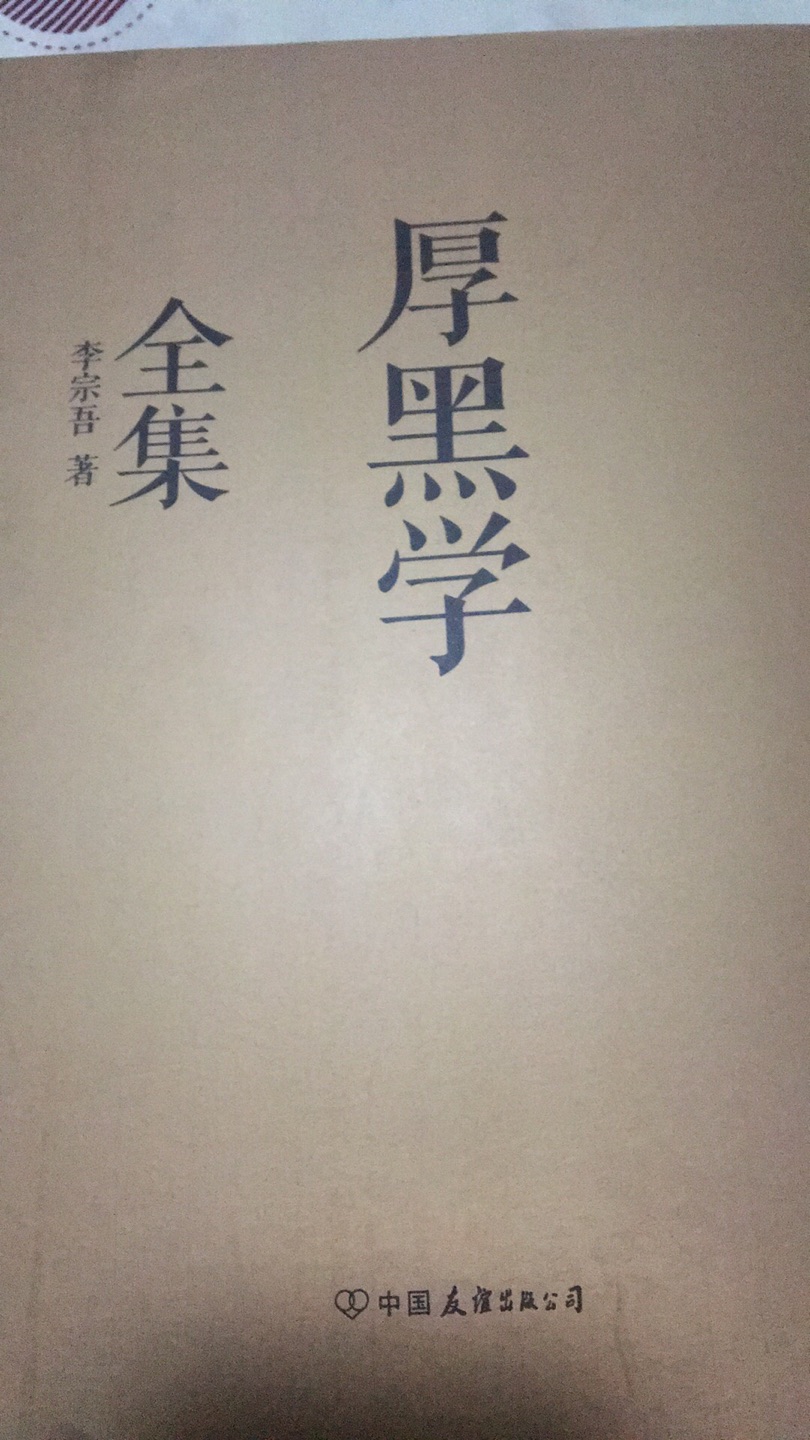 厚黑学
全集
李宗吾 著
中国友谊出版公司